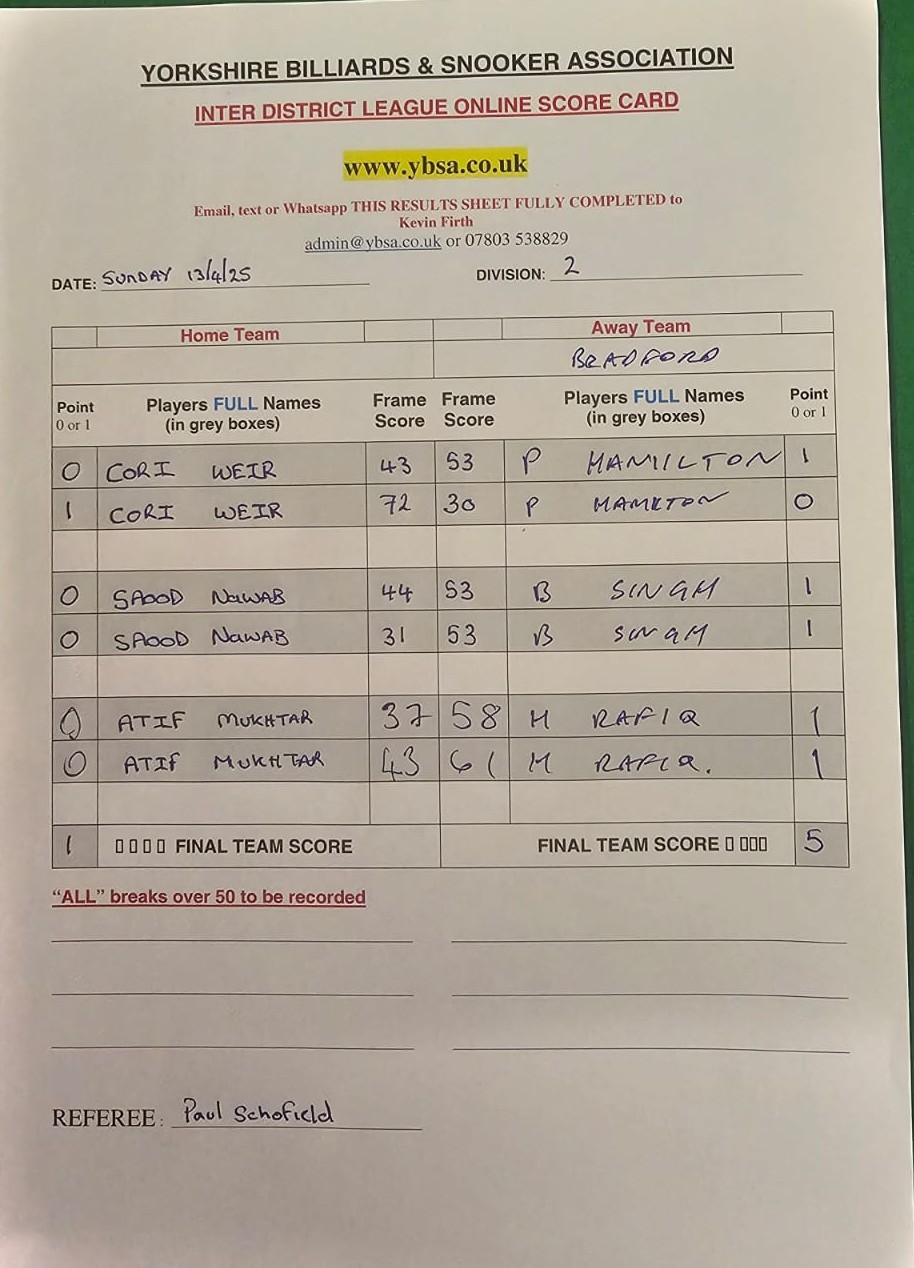 YORKSHIRE BILLIARDS & SNOOKER ASSOCIATION
INTER DISTRICT LEAGUE ONLINE SCORE CARD
www.ybsa.co.uk
Email, text or Whatsapp THIS RESULTS SHEET FULLY COMPLETED to
Kevin Firth
admin@ybsa.co.uk or 07803 538829
DATE: SUNDAY 13/4/25 DIVISION: 2
Home Team Away Team
BRADFORD
Point 0 or 1 Players FULL Names (in grey boxes) Frame Score Frame Score Players FULL Names (in grey boxes) Point 0 or 1
0 CORI WEIR 43 53 P HAMIILTON 1
1 CORI WEIR 72 30 P HAMILTON 0
0 SAOOD NAWAB 44 53 B SINGH 1
0 SAOOD NAWAB 31 53 B SINGH 1
0 ATIF MUKHTAR 37 58 H RAFIQ 1
0 ATIF MUKHTAR 43 61 H RAFIQ. 1
1 FINAL TEAM SCORE FINAL TEAM SCORE 5
“ALL” breaks over 50 to be recorded
REFEREE: Paul Schofield